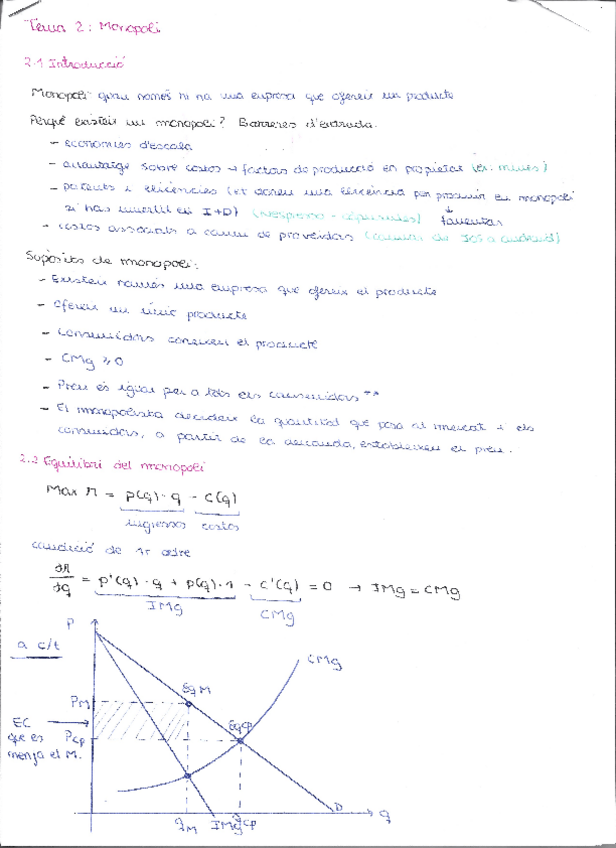 Tema 2: Monopoli
2.1 Introducció
Monopoli: quan només hi ha una empresa que ofereix un producte
Perquè existeix un monopoli? Barreres d'entrada.
- economies d'escala
- avantatge sobre costos → factors de producció en propietat (ex: mines)
- patents i llicències (et donen una llicència per produir en monopoli
si has invertit en I+D) (Nespresso - càpsules) ↓ fomentar
- costos associats a canvi de proveïdors (canviar de IOS a android)
Supòsits de monopoli:
- Existeix només una empresa que ofereix el producte
- Ofereix un únic producte
- Consumidors coneixen el producte
- CMg ≥ 0
- Preu és igual per a tots els consumidors **
- El monopolista decideix la quantitat que posa al mercat i els
consumidors, a partir de la demanda, estableixen el preu.
2.2 Equilibri del monopoli
Max π = p(q)·q - c(q)
ingressos costos
condició de 1r ordre
∂π/∂q = p'(q)·q + p(q)·1 - c'(q) = 0 → IMg = CMg
IMg CMg
a c/t
P
CMg
PM
EqM
EC
que es
menja el M.
Pcp
Eqcp
qM IMg qcp D q